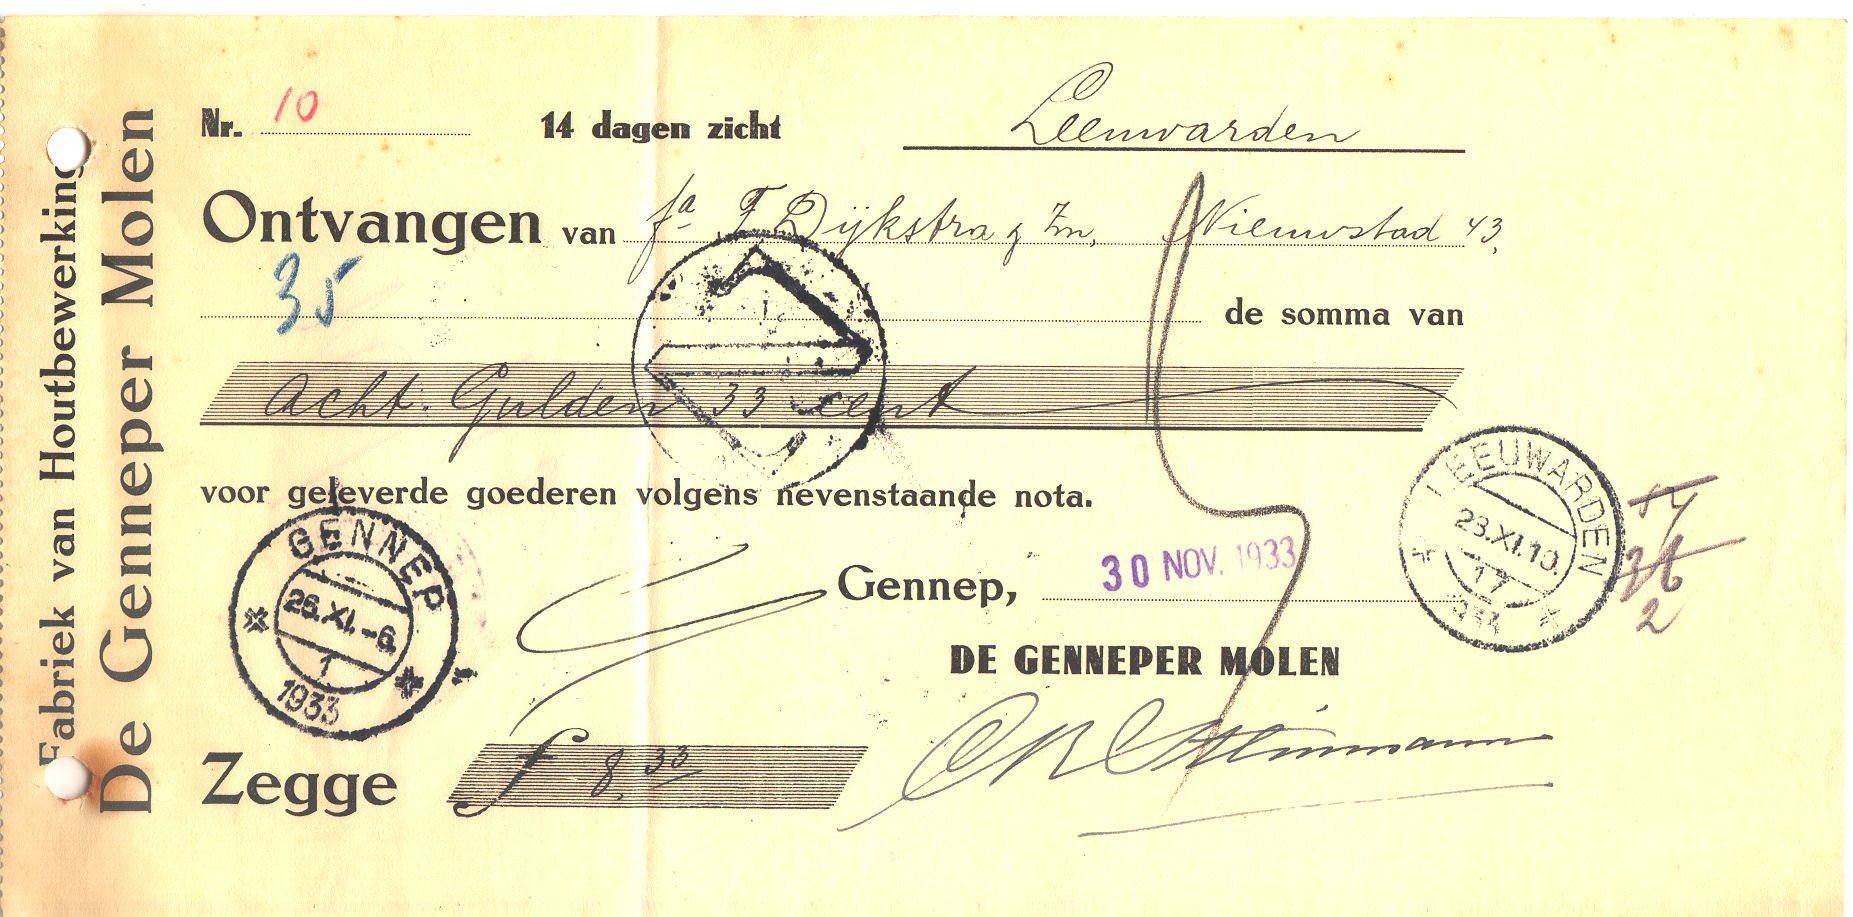 Fabriek van Houtbewerking
De Genneper Molen
Nr. 10 14 dagen zicht Leeuwarden
Ontvangen van fa F Dijkstra & Zn, Nieuwstad 43,
35 de somma van
Acht Gulden 33 cent
voor geleverde goederen volgens nevenstaande nota.
GENNEP
26.XI.-6.
1
1933
LEEUWARDEN
23.XI.10.
17
Gennep, 30 NOV. 1933
2
DE GENNEPER MOLEN
Zegge f 8,33